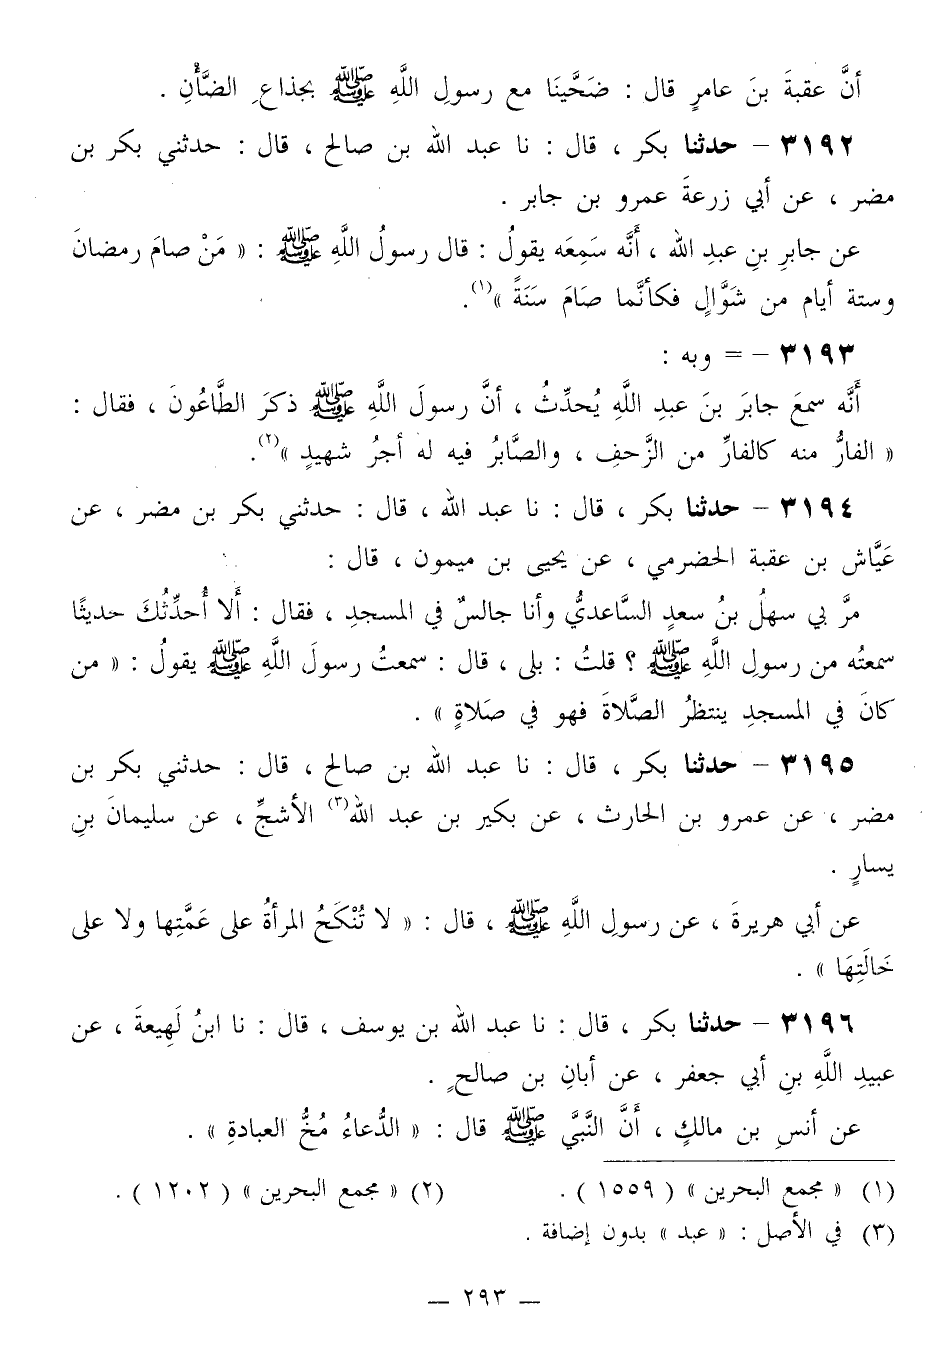 أنَّ عقبةَ بنَ عامرٍ قال : ضَحَّينَا مع رسولِ اللَّهِ ﷺ بجذاعِ الضَّأْنِ .
٣١٩٢ – حدثنا بكر ، قال : نا عبد الله بن صالح ، قال : حدثني بكر بن
مضر ، عن أبي زرعةَ عمرو بن جابر .
عن جابرِ بنِ عبدِ الله ، أَنَّه سَمِعَه يقولُ : قال رسولُ اللَّهِ ﷺ : « مَنْ صامَ رمضانَ
وستة أيام من شَوَّالٍ فكأنَّما صَامَ سَنَةً »(١).
٣١٩٣ – = وبه :
أَنَّه سمعَ جابرَ بنَ عبدِ اللَّهِ يُحدِّثُ ، أنَّ رسولَ اللَّهِ ﷺ ذكرَ الطَّاعُونَ ، فقال :
« الفارُّ منه كالفارِّ من الزَّحفِ ، والصَّابرُ فيه له أجرُ شهيدٍ »(٢).
٣١٩٤ – حدثنا بكر ، قال : نا عبد الله ، قال : حدثني بكر بن مضر ، عن
عَيَّاش بن عقبة الحضرمي ، عن يحيى بن ميمون ، قال :
مرَّ بي سهلُ بنُ سعدٍ السَّاعديُّ وأنا جالسٌ في المسجدِ ، فقال : أَلا أُحدِّثُكَ حديثًا
سمعتُه من رسولِ اللَّهِ ﷺ ؟ قلتُ : بلى ، قال : سمعتُ رسولَ اللَّهِ ﷺ يقولُ : « من
كانَ في المسجدِ ينتظرُ الصَّلاةَ فهو في صَلاةٍ » .
٣١٩٥ – حدثنا بكر ، قال : نا عبد الله بن صالح ، قال : حدثني بكر بن
مضر ، عن عمرو بن الحارث ، عن بكير بن عبد الله(٣) الأشجِّ ، عن سليمانَ بنِ
يسارٍ .
عن أبي هريرةَ ، عن رسولِ اللَّهِ ﷺ ، قال : « لا تُنْكَحُ المرأةُ على عَمَّتِها ولا على
خَالَتِهَا » .
٣١٩٦ – حدثنا بكر ، قال : نا عبد الله بن يوسف ، قال : نا ابنُ لَهِيعةَ ، عن
عبيدِ اللَّهِ بنِ أبي جعفر ، عن أبانِ بن صالحٍ .
عن أنسِ بن مالكٍ ، أَنَّ النَّبيَّ ﷺ قال : « الدُّعاءُ مُخُّ العبادةِ » .
(١) « مجمع البحرين » ( ١٥٥٩ ) . (٢) « مجمع البحرين » ( ١٢٠٢ ) .
(٣) في الأصل : « عبد » بدون إضافة .
– ٢٩٣ –